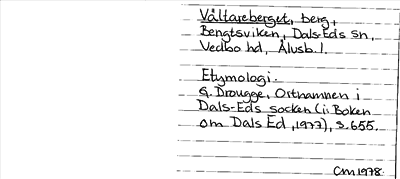 Vältareberget, berg,
Bengtsviken, Dals-Eds sn,
Vedbo hd, Älvsb. l.
Etymologi.
G. Drougge, Ortnamnen i
Dals-Eds socken (i: Boken
om Dals Ed, 1977), s. 655.
CM 1978.